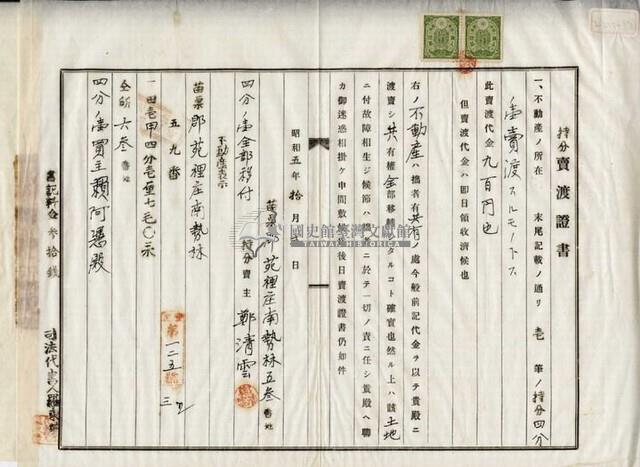 持分賣渡證書
一、不動產ノ所在 末尾記載ノ通リ 壱筆ノ持分四分
ノ壱賣渡スルモノトス
此賣渡代金九百円也
但賣渡代金ハ即日領收濟候也
右ノ不動產ハ拙者有共有ノ處今般前記代金ヲ以テ貴殿ニ
渡賣シ共有權全部移轉シタルコト確實也然ル上ハ該土地
ニ付故障相生ジ候節ハ拙者ニ於テ一切ノ責ニ任シ貴殿ヘ聊
カ御迷惑相掛ケ申間敷候後日賣渡證書仍如件
昭和五年拾月 日
苗栗郡苑裡庄南勢林五叁番地
持分賣主 鄭清雲
四分ノ壱全部移付
不動產表示
苗栗郡苑裡庄南勢林
五九番
一田壱甲四分壱厘七毛〇糸
仝所六叁番地
四分ノ壱買主賴阿憑殿
書記料金叁拾錢
司法代書人羅
第一二五號
國史館臺灣文獻館
TAIWAN HISTORICA